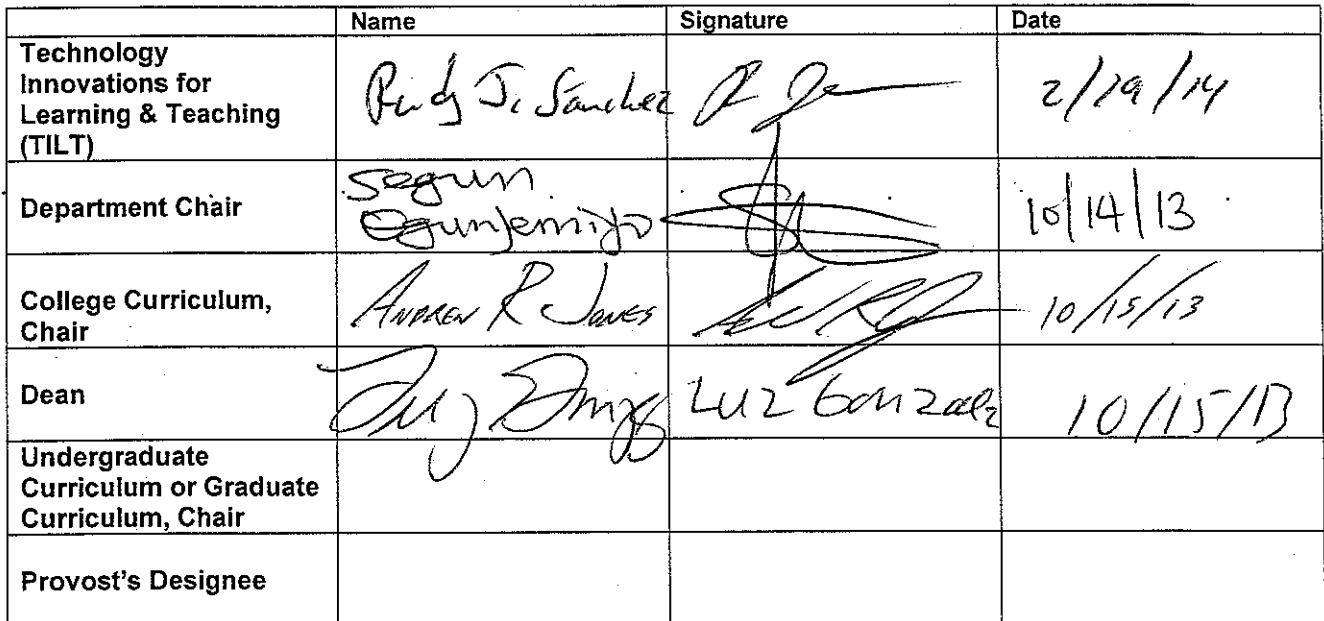 Name Signature Date
Technology
Innovations for
Learning & Teaching
(TILT)
Rudy J. Sanchez 2/19/14
Department Chair
Segun
Ogunjemiyo 10/14/13
College Curriculum,
Chair
Andrew R Jones 10/15/13
Dean
Luz Gonzalez 10/15/13
Undergraduate
Curriculum or Graduate
Curriculum, Chair
Provost's Designee